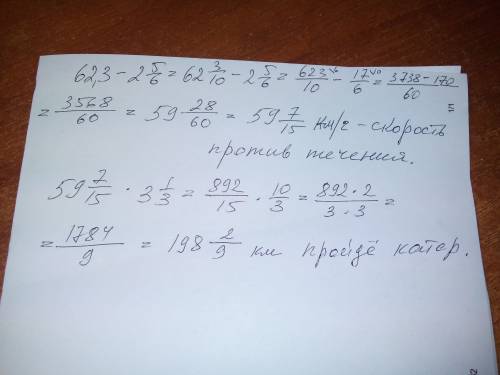 62,3 - 2 5/6 = 62 3/10 - 2 5/6 = 623/10 - 17/6 = 3738-170/60 =
= 3568/60 = 59 28/60 = 59 7/15 км/ч - скорость
против течения.
59 7/15 · 3 1/3 = 892/15 · 10/3 = 892·2/3·3 =
= 1784/9 = 198 2/9 км пройдё катер.